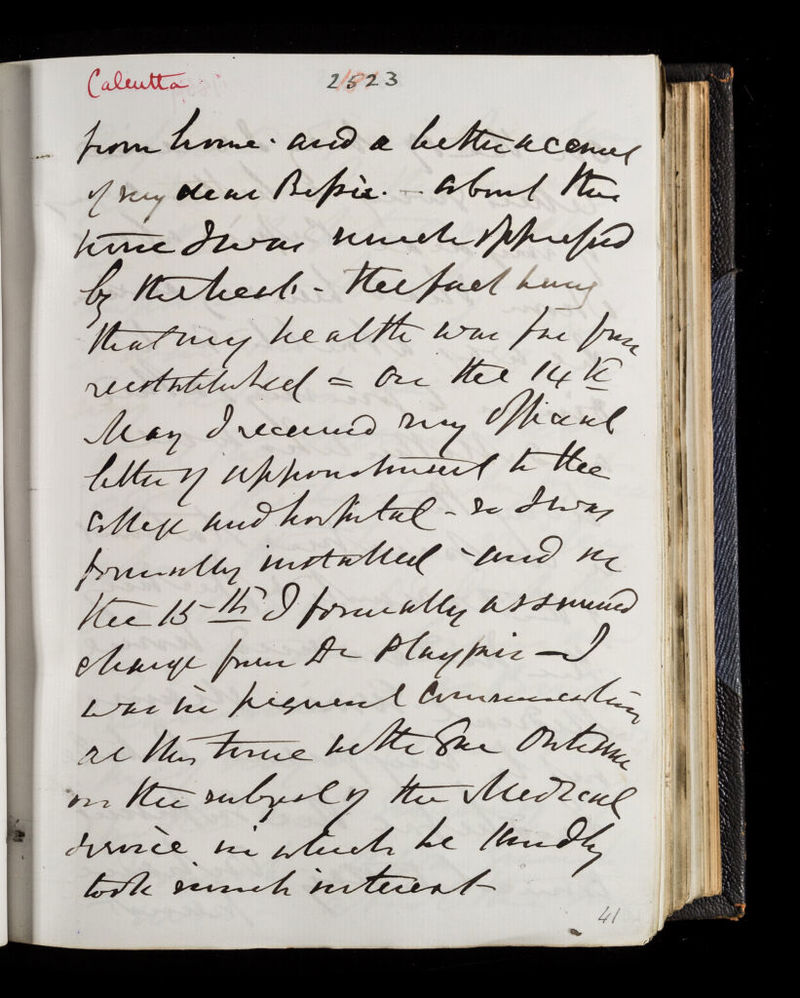 Calcutta 2523
from home. and a better account
of my dear Bessie. - about this
time I was much oppressed
by the heat. - The fact being
that my health was far from
reestablished = On the 14th
May I received my Official
letter of appointment to the
College and hospital - so I was
formally installed - and on
the 15th I formally assumed
charge from Dr Playfair - I
was in frequent Communication
at this time with Sir
on the subject of the Medical
Service in which he kindly
took much interest
41